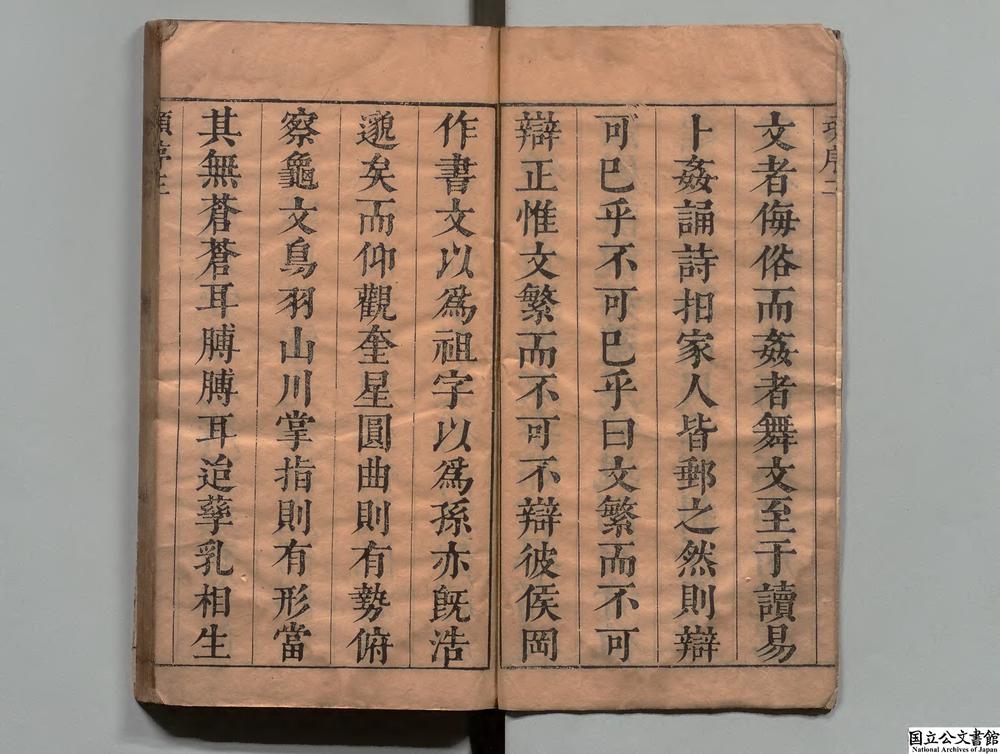 文者侮俗而姦者舞文至于讀易
卜姦誦詩扣家人皆郵之然則辯
可已乎不可已乎曰文繁而不可
辯正惟文繁而不可不辯彼侯岡
作書文以爲祖字以爲孫亦旣浩
邈矣而仰觀奎星圓曲則有勢俯
察龜文鳥羽山川掌指則有形當
其無蒼蒼耳膊膊耳迨孳乳相生
国立公文書館
National Archives of Japan